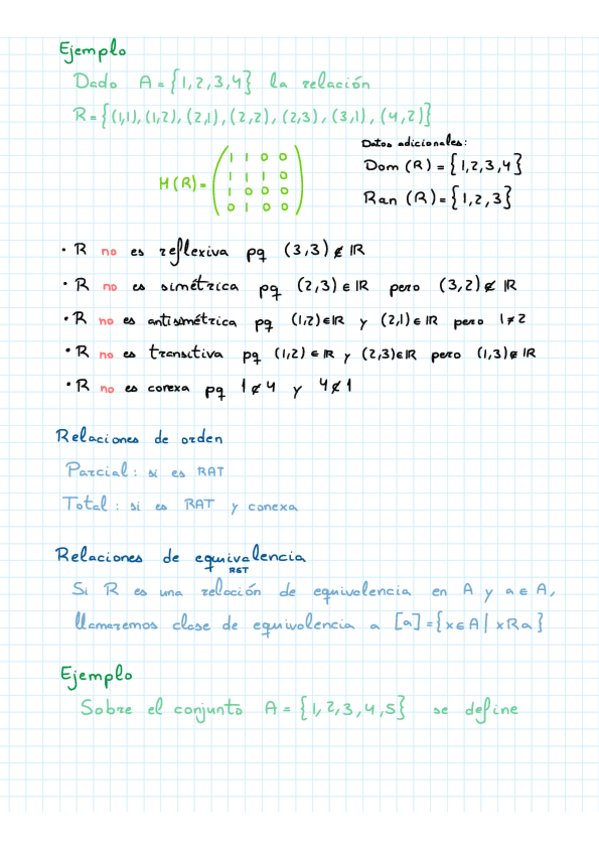 Ejemplo
Dado A = {1,2,3,4} la relación
R = {(1,1), (1,2), (2,1), (2,2), (2,3), (3,1), (4,2)}
Datos adicionales:
Dom (R) = {1,2,3,4}
Ran (R) = {1,2,3}
M(R) =
1 1 0 0
1 1 1 0
1 0 0 0
0 1 0 0
• R no es reflexiva pq (3,3) ∉ R
• R no es simétrica pq (2,3) ∈ R pero (3,2) ∉ R
• R no es antisimétrica pq (1,2) ∈ R y (2,1) ∈ R pero 1 ≠ 2
• R no es transitiva pq (1,2) ∈ R y (2,3) ∈ R pero (1,3) ∉ R
• R no es conexa pq 1 ≮ 4 y 4 ≮ 1
Relaciones de orden
Parcial: si es RAT
Total: si es RAT y conexa
Relaciones de equivalencia
RST
Si R es una relación de equivalencia en A y a ∈ A,
llamaremos clase de equivalencia a [a] = {x ∈ A | xRa}
Ejemplo
Sobre el conjunto A = {1,2,3,4,5} se define